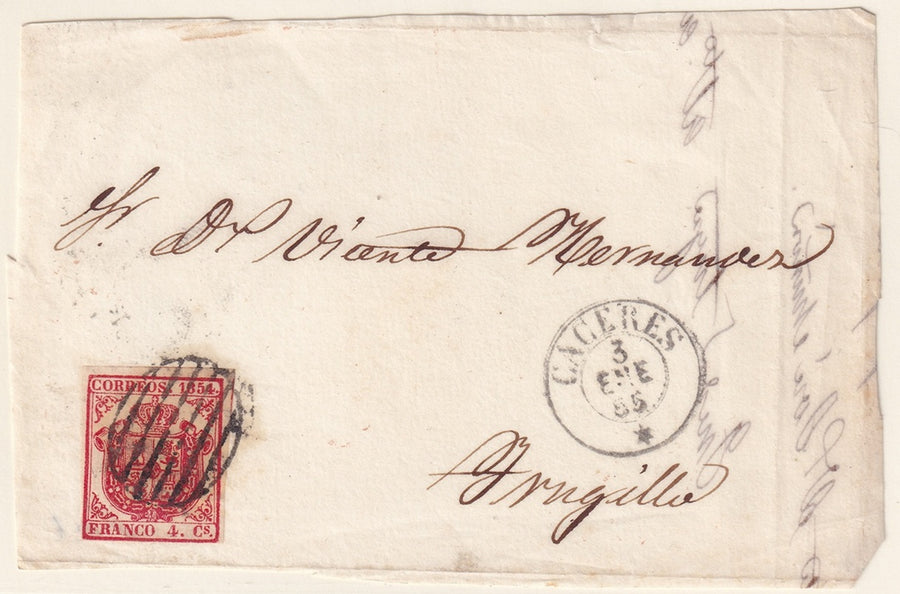 Sr Dn Vicente Hernandez
CACERES
3
ENE
55
Trugillo
CORREOS 1854
FRANCO 4. Cs.